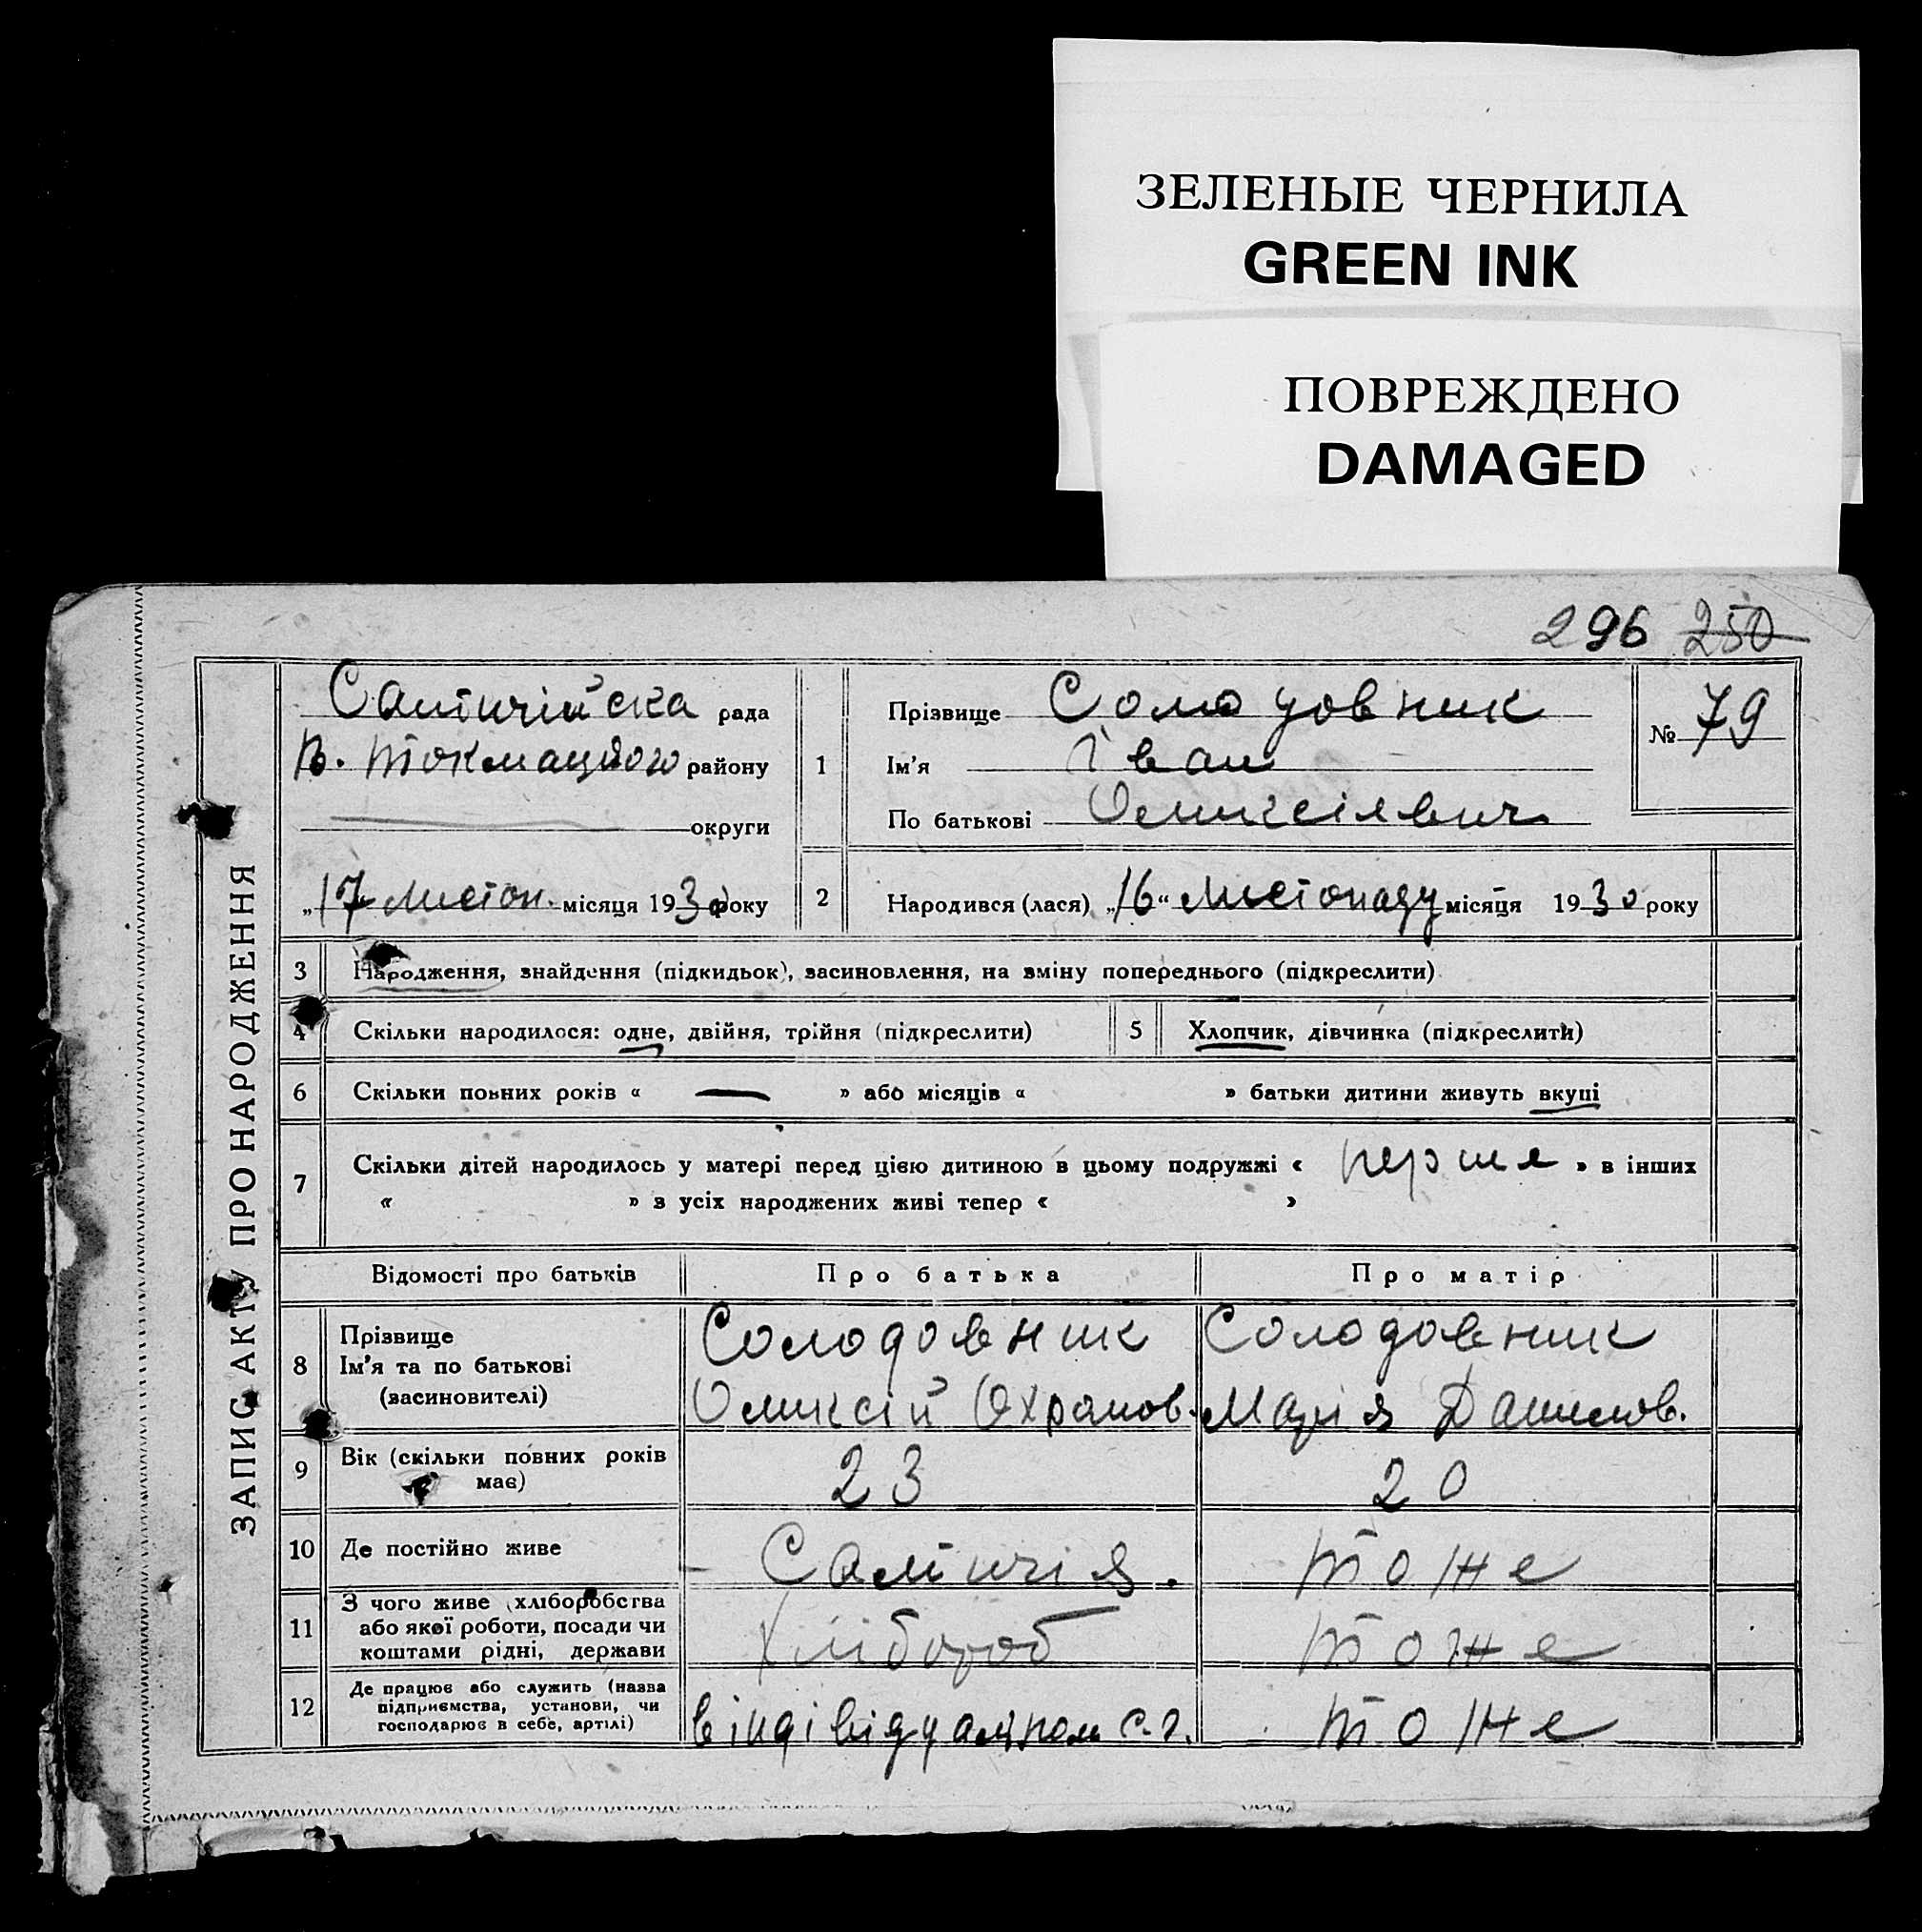 ЗЕЛЕНЫЕ ЧЕРНИЛА
GREEN INK
ПОВРЕЖДЕНО
DAMAGED
296 250
ЗАПИС АКТУ ПРО НАРОДЖЕННЯ
рада
В. Токмацького району
округи
„17 листоп. місяця 1930 року
1
Прізвище Солодовник
Ім'я Іван
По батькові Оликсієвич
№ 79
2 Народився (лася) „16“ листопаду місяця 1930 року
3 Народження, знайдення (підкидьок), засиновлення, на зміну попереднього (підкреслити)
4 Скільки народилося: одне, двійня, трійня (підкреслити)
5 Хлопчик, дівчинка (підкреслити)
6 Скільки повних років « — » або місяців « » батьки дитини живуть вкупі
7 Скільки дітей народилось у матері перед цією дитиною в цьому подружжі « перше » в інших
« » з усіх народжених живі тепер « »
Відомості про батьків Про батька Про матір
8 Прізвище
Ім'я та по батькові
(засиновителі)
Солодовник
Оликсій Охрамов.
Солодовник
Марія Данилов.
9 Вік (скільки повних років
має)
23
20
10 Де постійно живе
тоже
11 З чого живе (хліборобства
або якої роботи, посади чи
коштами рідні, держави
Хлібороб
тоже
12 Де працює або служить (назва
підприємства, установи, чи
господарює в себе, артілі)
в індівідуальном с.г.
тоже